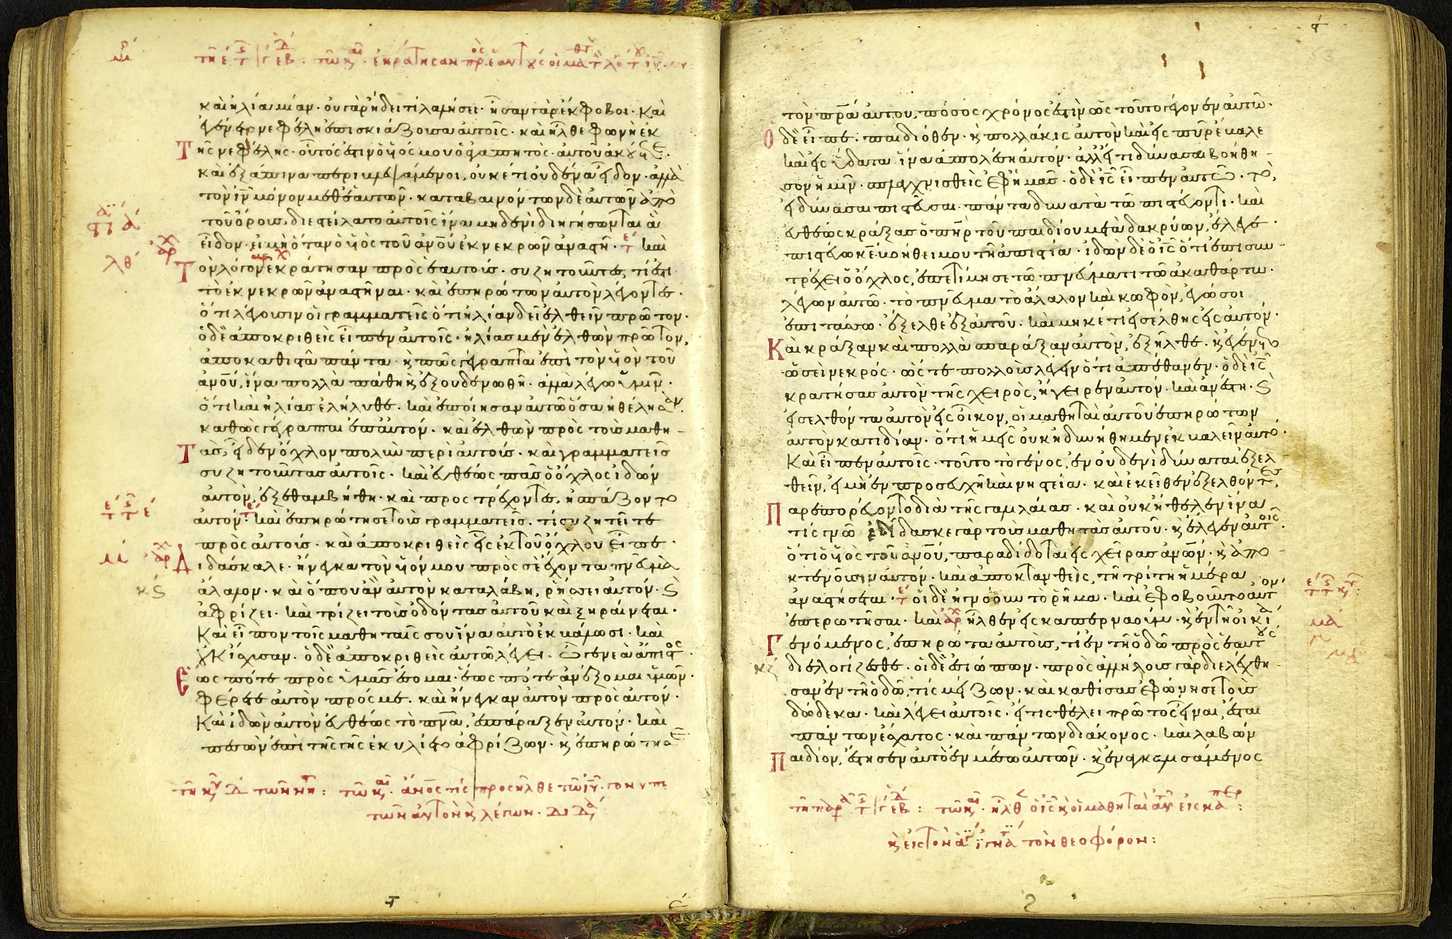 καὶ ἠλίᾳ μίαν· οὐ γὰρ ᾔδει τί λαλήσει· ἦσαν γὰρ ἔκφοβοι· καὶ
ἐγένετο νεφέλη ἐπισκιάζουσα αὐτοῖς· καὶ ἦλθε φωνὴ ἐκ
τῆς νεφέλης· οὗτός ἐστιν ὁ υἱός μου ὁ ἀγαπητός· αὐτοῦ ἀκούετε·
καὶ ἐξάπινα περιβλεψάμενοι, οὐκέτι οὐδένα εἶδον· ἀλλὰ
τὸν ἰν μόνον μεθ' ἑαυτῶν· καταβαινόντων δὲ αὐτῶν ἀπὸ
τοῦ ὄρους· διεστείλατο αὐτοῖς ἵνα μηδενὶ διηγήσωνται ἃ
εἶδον· εἰ μὴ ὅταν ὁ υἱὸς τοῦ ανου ἐκ νεκρῶν ἀναστῇ· καὶ
Τὸν λόγον ἐκράτησαν πρὸς ἑαυτούς· συζητοῦντες, τί ἐστι
τὸ ἐκ νεκρῶν ἀναστῆναι· καὶ ἐπηρώτων αὐτὸν λέγοντες·
ὅτι λέγουσιν οἱ γραμματεῖς ὅτι ἠλίαν δεῖ ἐλθεῖν πρῶτον·
ὁ δὲ ἀποκριθεὶς εἶπεν αὐτοῖς· ἠλίας μὲν ἐλθὼν πρῶτον,
ἀποκαθιστᾷ πάντα· κ πῶς γέγραπται ἐπὶ τὸν υἱὸν τοῦ
ανου, ἵνα πολλὰ πάθῃ κ ἐξουδενωθῇ· ἀλλὰ λέγω ὑμῖν·
ὅτι καὶ ἠλίας ἐλήλυθε· καὶ ἐποίησαν αὐτῷ ὅσα ἠθέλησαν·
καθὼς γέγραπται ἐπ' αὐτόν· καὶ ἐλθὼν πρὸς τοὺς μαθη-
Τάς, εἶδεν ὄχλον πολὺν περὶ αὐτούς· καὶ γραμματεῖς
συζητοῦντας αὐτοῖς· καὶ εὐθέως πᾶς ὁ ὄχλος ἰδὼν
αὐτὸν, ἐξεθαμβήθη· καὶ προστρέχοντες, ἠσπάζοντο
αὐτόν· καὶ ἐπηρώτησε τοὺς γραμματεῖς· τί συζητεῖτε
πρὸς αὐτούς· καὶ ἀποκριθεὶς εἷς ἐκ τοῦ ὄχλου εἶπε·
Διδάσκαλε· ἤνεγκα τὸν υἱόν μου πρὸς σὲ ἔχοντα πνεῦμα
ἄλαλον· καὶ ὅπου ἂν αὐτὸν καταλάβῃ, ῥήσσει αὐτόν· κ
ἀφρίζει· καὶ τρίζει τοὺς ὀδόντας αὐτοῦ καὶ ξηραίνεται·
Καὶ εἶπον τοῖς μαθηταῖς σου ἵνα αὐτὸ ἐκβάλωσι· καὶ
οὐκ ἴσχυσαν· ὁ δὲ ἀποκριθεὶς αὐτῷ λέγει· ὦ γενεὰ ἄπιστος·
Ἕως πότε πρὸς ὑμᾶς ἔσομαι· ἕως πότε ἀνέξομαι ὑμῶν·
Φέρετε αὐτὸν πρός με· καὶ ἤνεγκαν αὐτὸν πρὸς αὐτόν·
Καὶ ἰδὼν αὐτὸν εὐθέως τὸ πνα, ἐσπάραξεν αὐτόν· καὶ
πεσὼν ἐπὶ τῆς γῆς ἐκυλίετο ἀφρίζων· κ ἐπηρώτησε
τὸν πρα αὐτοῦ, πόσος χρόνος ἐστὶν ὡς τοῦτο γέγονεν αὐτῷ·
Ὁ δὲ εἶπε· παιδιόθεν· κ πολλάκις αὐτὸν καὶ εἰς πῦρ ἔβαλε
καὶ εἰς ὕδατα ἵνα ἀπολέσῃ αὐτόν· ἀλλ' εἴ τι δύνασαι βοήθη-
σον ἡμῖν· σπλαγχνισθεὶς ἐφ' ἡμᾶς· ὁ δὲ ις εἶπεν αὐτῷ· τὸ,
εἰ δύνασαι πιστεῦσαι· πάντα δυνατὰ τῷ πιστεύοντι· καὶ
εὐθέως κράξας ὁ πηρ τοῦ παιδίου μετὰ δακρύων, ἔλεγε·
πιστεύω κε βοήθει μου τῇ ἀπιστίᾳ· ἰδὼν δὲ ὁ ις ὅτι ἐπισυν-
τρέχει ὁ ὄχλος, ἐπετίμησε τῷ πνεύματι τῷ ἀκαθάρτῳ·
λέγων αὐτῷ· τὸ πνεῦμα τὸ ἄλαλον καὶ κωφὸν, ἐγώ σοι
ἐπιτάσσω· ἔξελθε ἐξ αὐτοῦ· καὶ μηκέτι εἰσέλθῃς εἰς αὐτόν·
Καὶ κράξαν καὶ πολλὰ σπαράξαν αὐτὸν, ἐξῆλθε· κ ἐγένετο
ὡσεὶ νεκρός· ὥστε πολλοὺς λέγειν ὅτι ἀπέθανεν· ὁ δὲ ις
κρατήσας αὐτὸν τῆς χειρὸς, ἤγειρεν αὐτόν· καὶ ἀνέστη· κ
εἰσελθόντα αὐτὸν εἰς οἶκον, οἱ μαθηταὶ αὐτοῦ ἐπηρώτων
αὐτὸν κατιδίαν· ὅτι ἡμεῖς οὐκ ἠδυνήθημεν ἐκβαλεῖν αὐτό·
Καὶ εἶπεν αὐτοῖς· τοῦτο τὸ γένος, ἐν οὐδενὶ δύναται ἐξελ
θεῖν, εἰ μὴ ἐν προσευχῇ καὶ νηστείᾳ· καὶ ἐκεῖθεν ἐξελθόντες,
Παρεπορεύοντο διὰ τῆς γαλιλαίας· καὶ οὐκ ἤθελεν ἵνα
τις γνῷ ἐδίδασκε γὰρ τοὺς μαθητὰς αὐτοῦ· κ ἔλεγεν αὐτοῖς
ὅτι ὁ υἱὸς τοῦ ανου, παραδίδοται εἰς χεῖρας ανων· κ ἀπο-
κτενοῦσιν αὐτόν· καὶ ἀποκτανθεὶς, τῇ τρίτῃ ἡμέρᾳ
ἀναστήσεται· οἱ δὲ ἠγνόουν τὸ ῥῆμα· καὶ ἐφοβοῦντο αὐτὸν
ἐπερωτῆσαι· καὶ ἦλθεν εἰς καπερναούμ· κ ἐν τῇ οἰκίᾳ
Γενόμενος, ἐπηρώτα αὐτοὺς, τί ἐν τῇ ὁδῷ πρὸς ἑαυτοὺς
διελογίζεσθε· οἱ δὲ ἐσιώπων· πρὸς ἀλλήλους γὰρ διελέχθη-
σαν ἐν τῇ ὁδῷ, τίς μείζων· καὶ καθίσας ἐφώνησε τοὺς
δώδεκα· καὶ λέγει αὐτοῖς· εἴ τις θέλει πρῶτος εἶναι, ἔσται
πάντων ἔσχατος· καὶ πάντων διάκονος· καὶ λαβὼν
Παιδίον, ἔστησεν αὐτὸ ἐν μέσῳ αὐτῶν· κ ἐναγκαλισάμενος